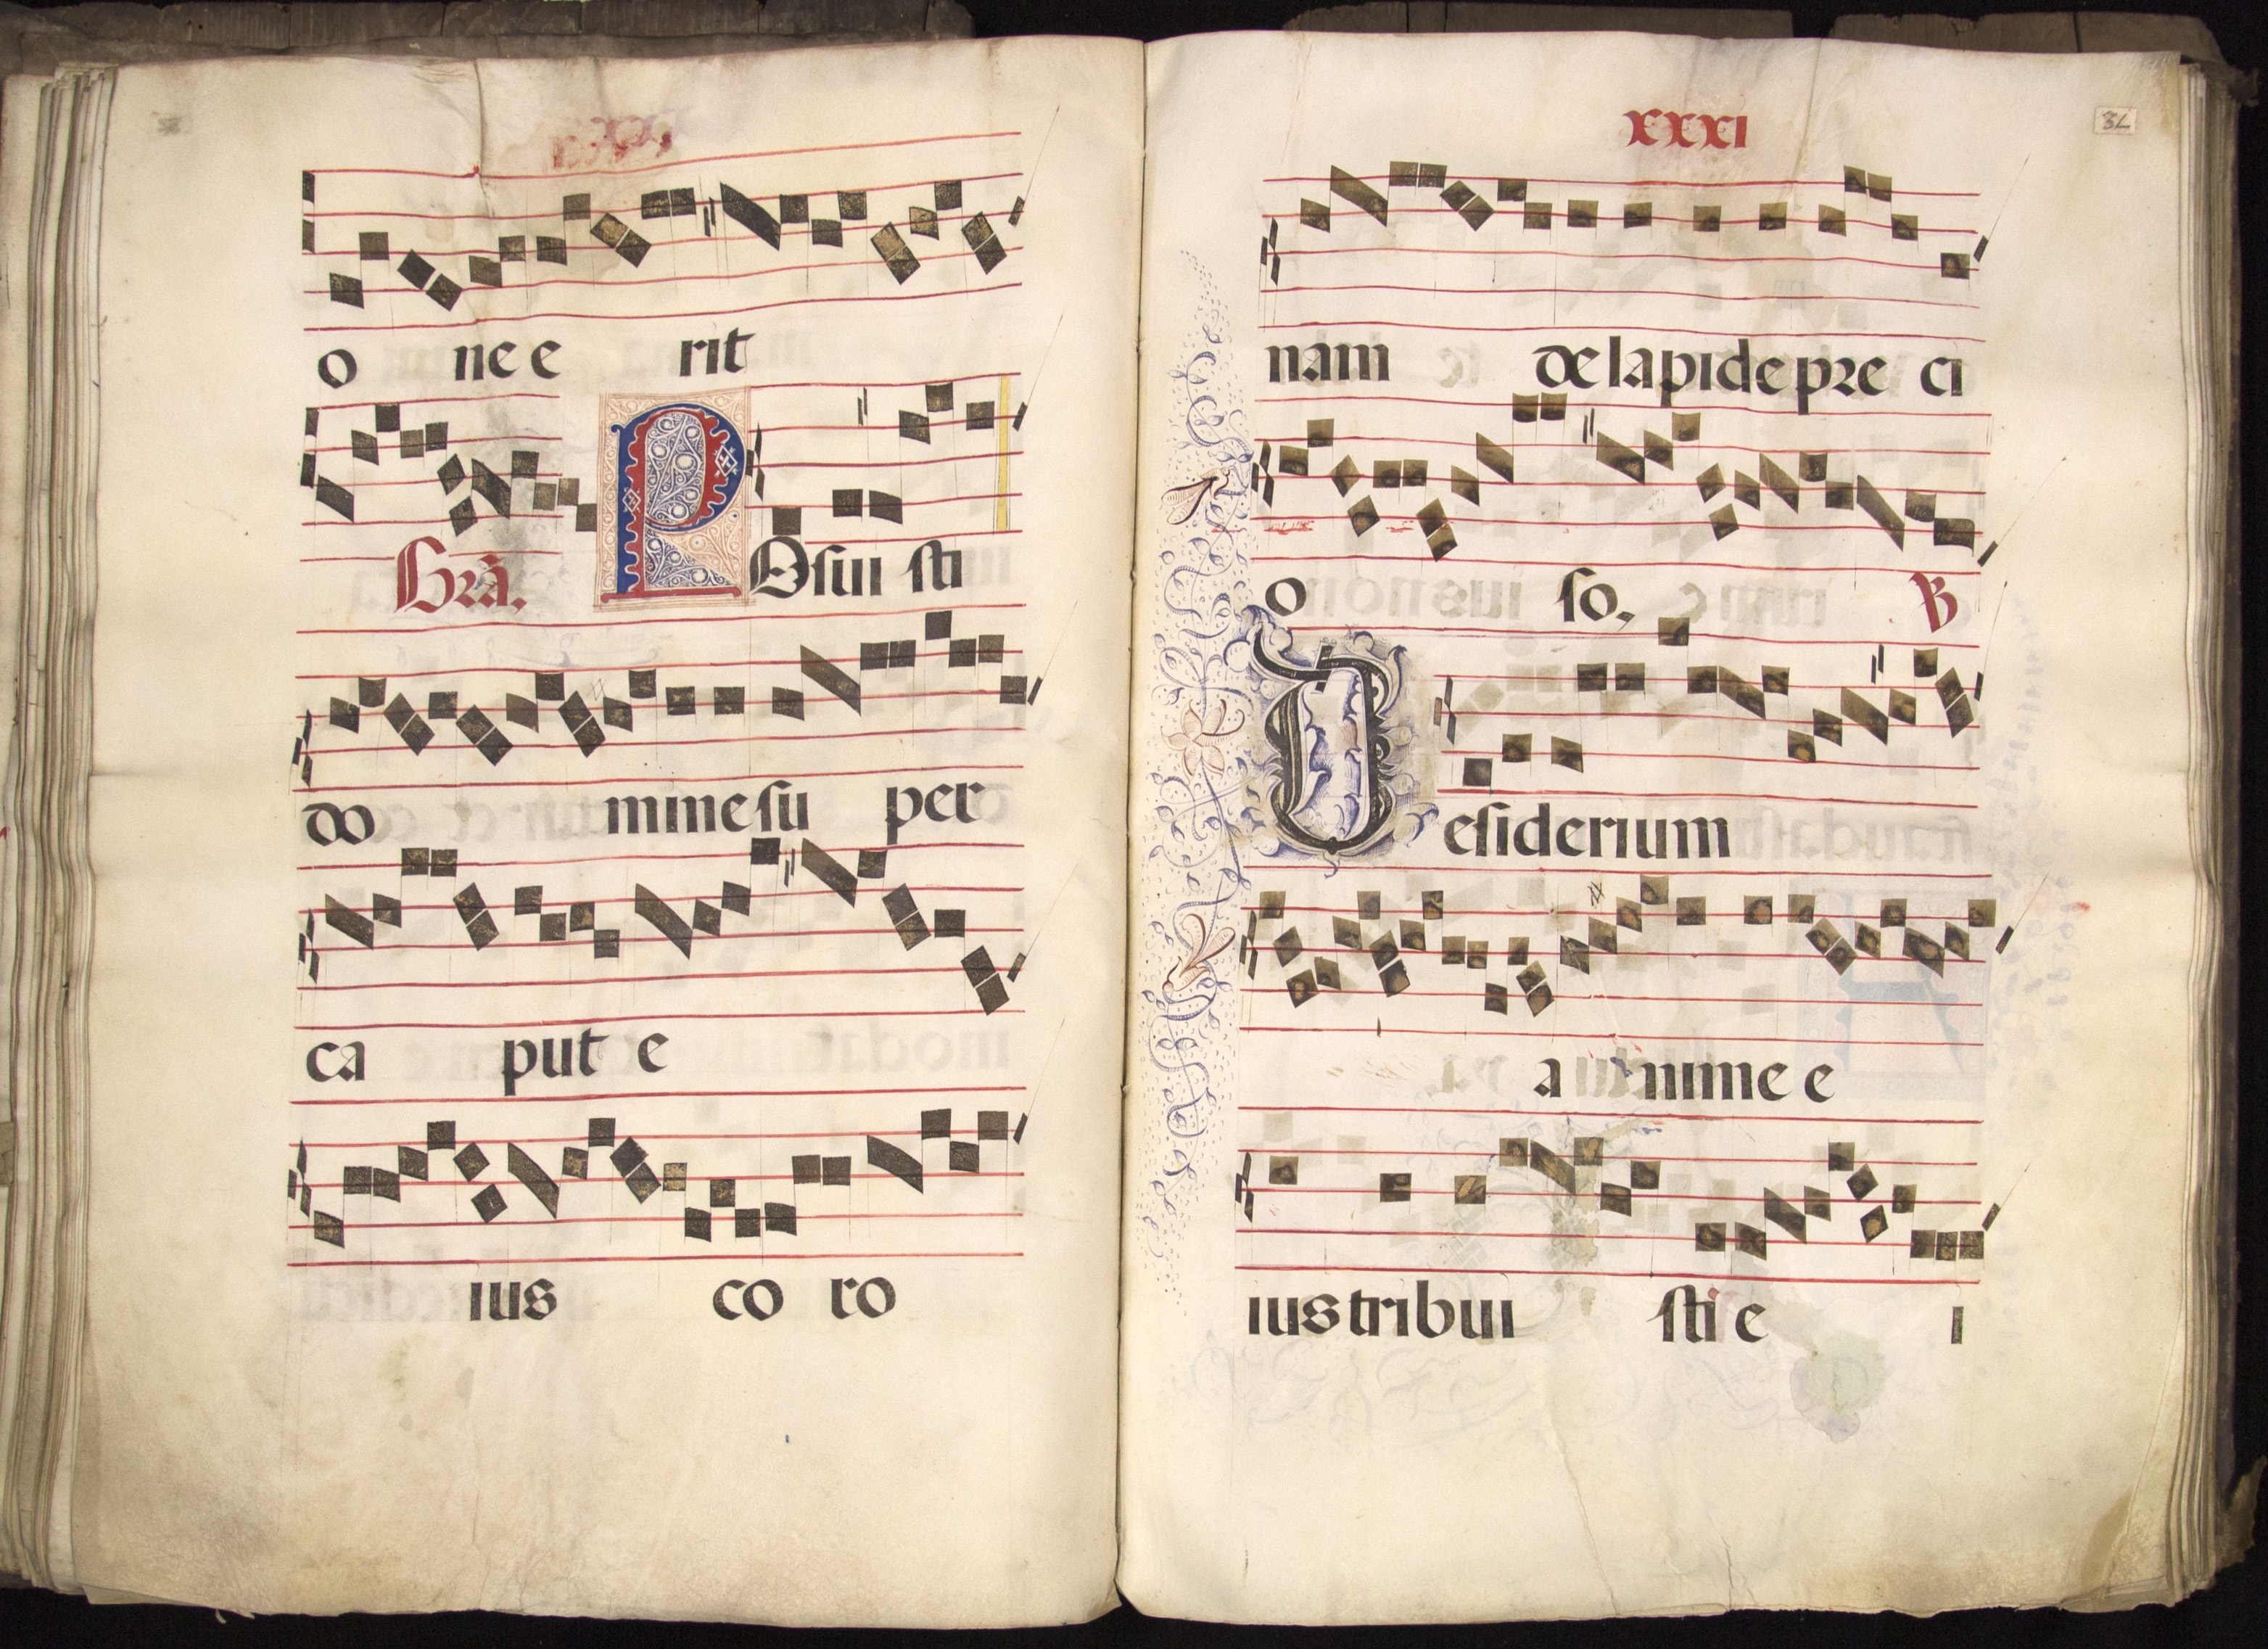 o ne e rit
Gra. POsui sti
do mine su per
ca put e
ius co ro
XXXI
nam de lapide pre ci
o so. V
Desiderium
a nime e
ius tribui sti e i